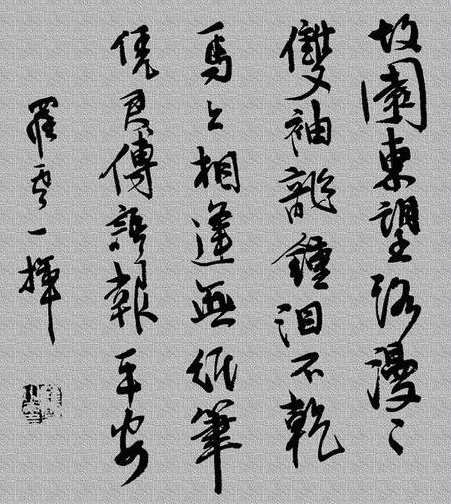 故園東望路漫〻
雙袖龍鍾淚不乾
馬上相逢無紙筆
憑君傳語報平安
羅雲一揮